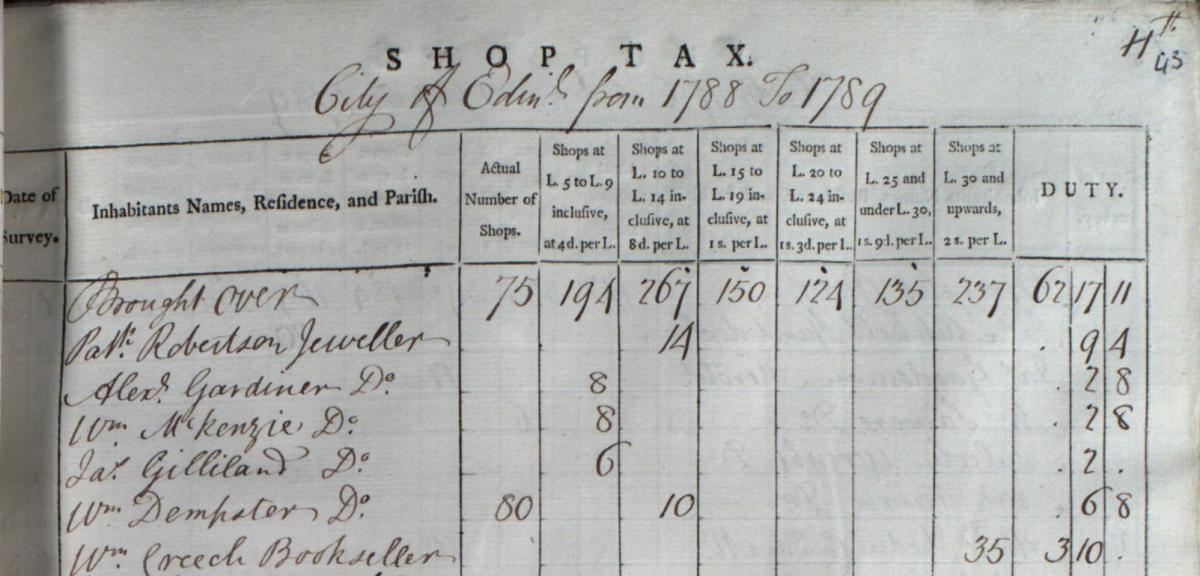 SHOP TAX.
11th
43
City of Edinr. from 1788 To 1789
Date of Survey. | Inhabitants Names, Residence, and Parish. | Actual Number of Shops. | Shops at L. 5 to L. 9 inclusive, at 4d. per L. | Shops at L. 10 to L. 14 inclusive, at 8d. per L. | Shops at L. 15 to L. 19 inclusive, at 1s. per L. | Shops at L. 20 to L. 24 inclusive, at 1s. 3d. per L. | Shops at L. 25 and under L. 30, 1s. 9d. per L. | Shops at L. 30 and upwards, 2s. per L. | DUTY.
Brought over 75 194 267 150 124 135 237 62 17 11
Patk. Robertson Jeweller 14 . 9 4
Alexr. Gardiner Do. 8 . 2 8
Wm. McKenzie Do. 8 . 2 8
Jas. Gilliland Do. 6 . 2 .
Wm. Dempster Do. 80 10 . 6 8
Wm. Creech Bookseller 35 3 10 .